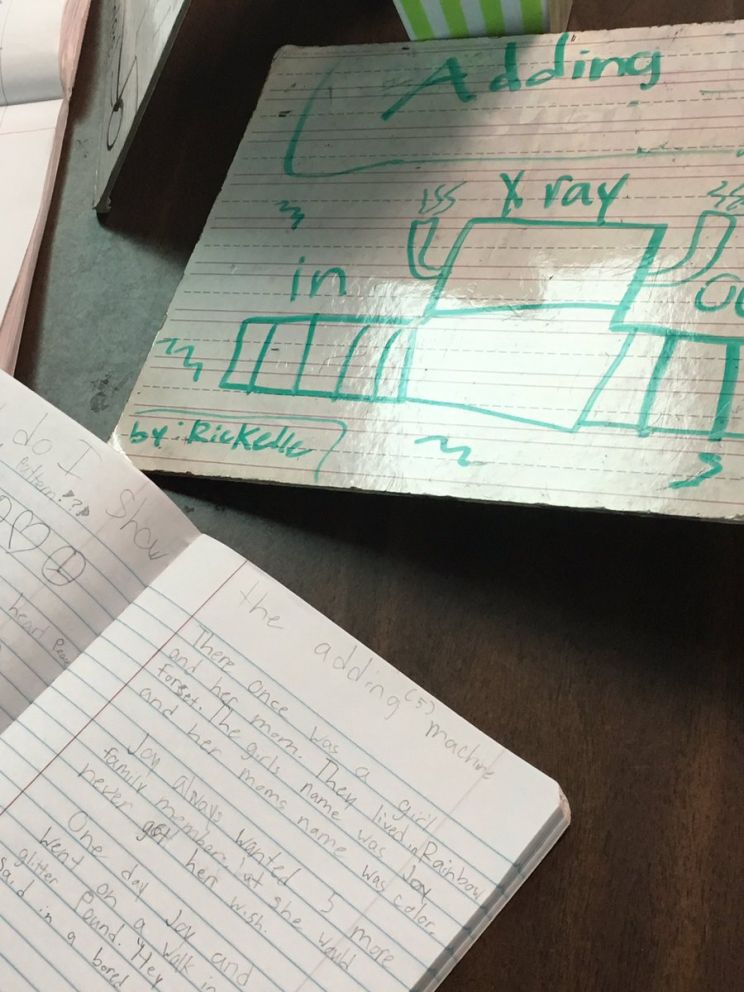 Adding
X ray
in
by: Rickelle
do I show
Pattern???
heart
the adding (5) machine
There once was a girl
and her mom. They lived in Rainbow
forest. The girls name was Joy
and her moms name was color.
Joy always wanted 5 more
family members but she would
never get her wish.
One day Joy and
went on a walk in
glitter Pound. "Hey
said in a bored